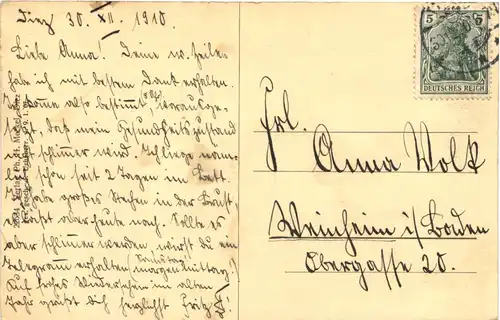 Diez 30. XII. 1910.
Liebe Anna! Deine w. Zeile
habe ich mit bestem Dank erhalten.
Ich komme also bestimmt, vorausge-
setzt, daß mein Gesundheitszustand
nicht schlimmer wird. Ich liege näm-
lich schon seit 2 Tagen im Bett.
Ich habe großes Stechen in der Brust,
heute noch. Sollte es
aber schlimmer werden, wirst du ein
Telegramm erhalten (Samstag
morgen mittag)
Auf frohes Wiedersehen im alten
Jahr grüßt dich herzlichst Fritz.
5 5
DEUTSCHES REICH
Frl.
Anna Wolk
Weinheim i/Baden
Obergasse 20.